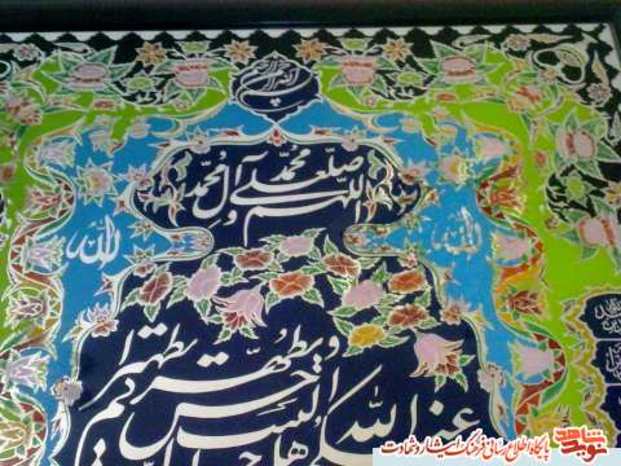 بسم الله الرحمن الرحیم
اللهم صل علی محمد و آل محمد
الله
الله
و یطهرکم تطهیرا
عنکم الرجس اهل البیت
نوید شاهد پایگاه اطلاع رسانی فرهنگ ایثار و شهادت